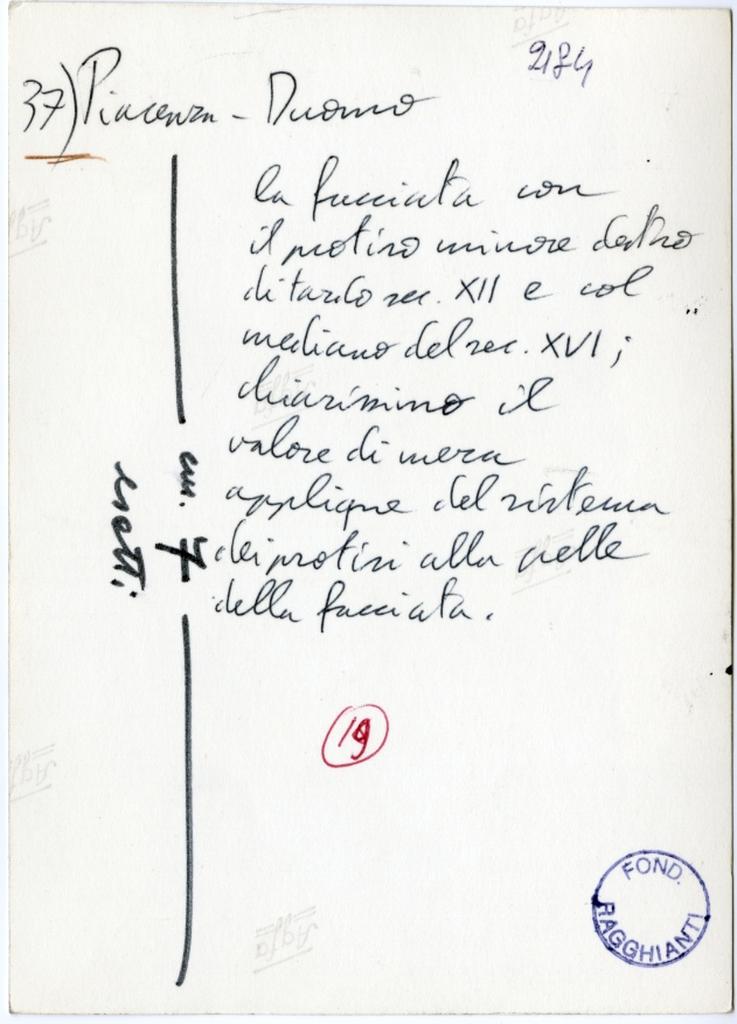 284
37) Piacenza - Duomo
la facciata con
il protiro minore destro
di tardo sec. XII e col
mediano del sec. XVI;
chiarissimo il
valore di mera
applique del sistema
dei protiri alla pelle
della facciata.
cm. 7
esatti
19
FOND.
RAGGHIANTI
Agfa
Agfa
Agfa
Agfa